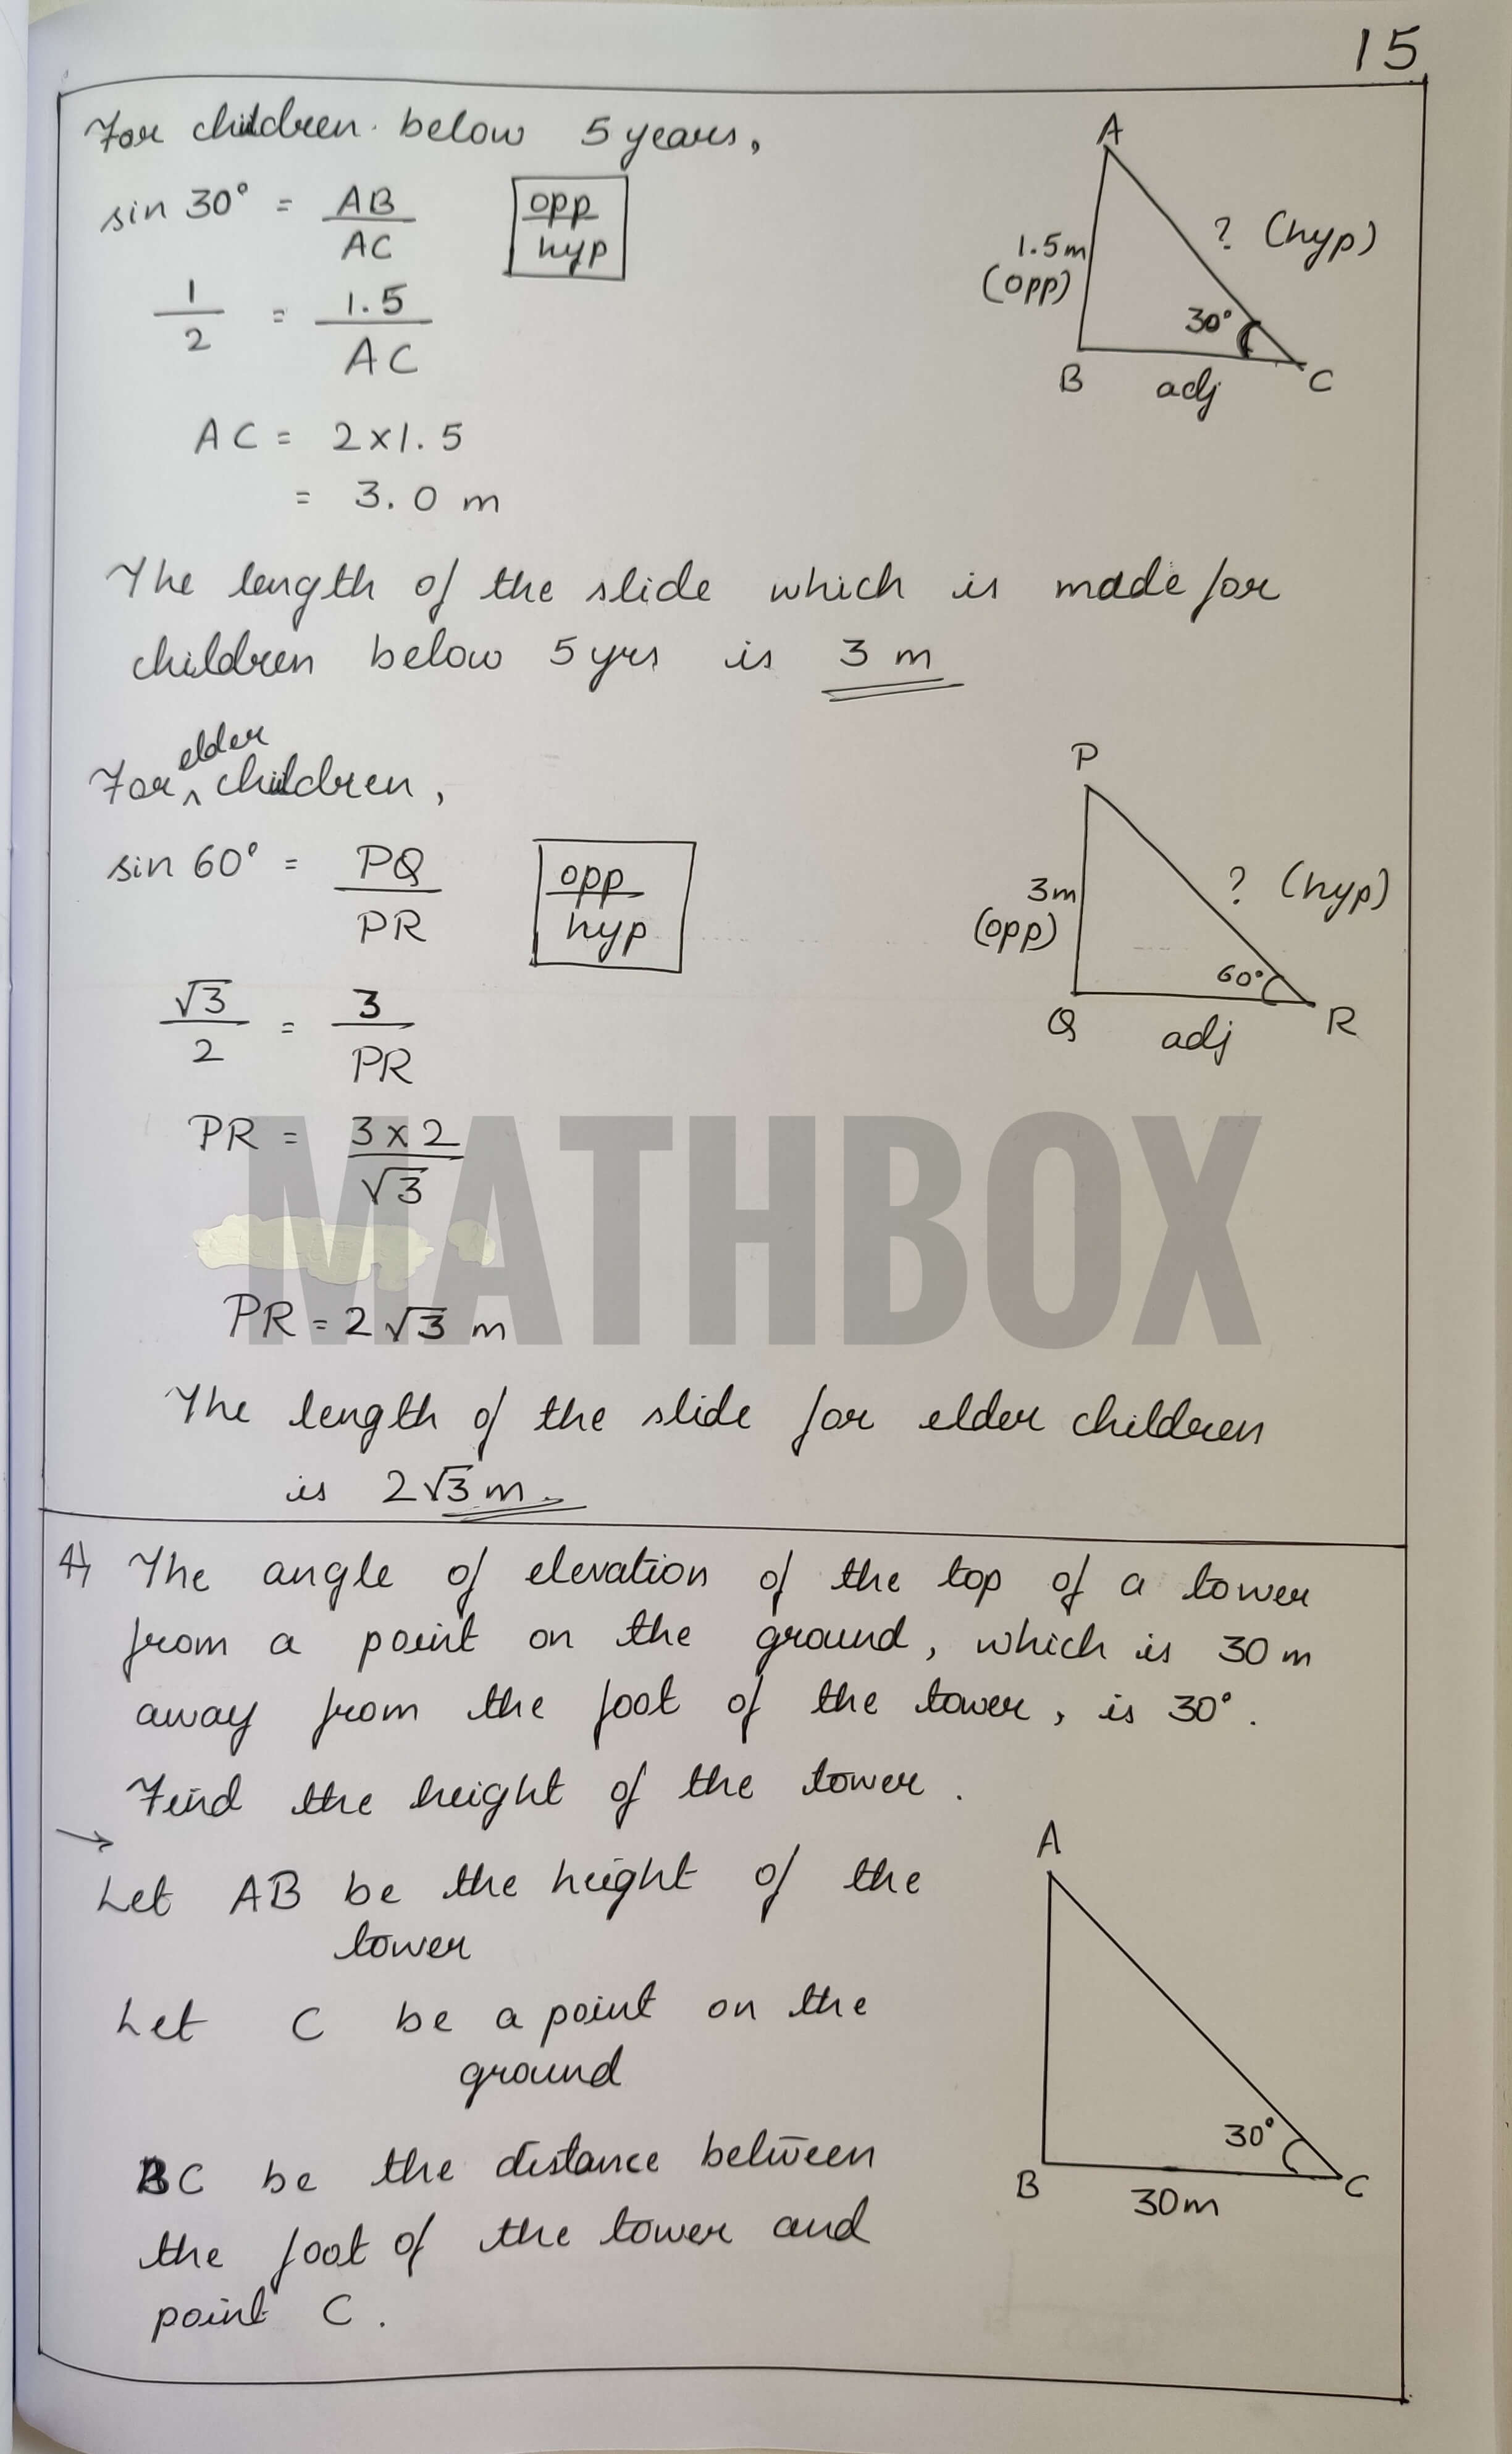 15
For children below 5 years,
sin 30° = AB/AC
opp/hyp
1/2 = 1.5/AC
AC = 2×1.5
= 3.0 m
A
1.5m
(opp)
? (hyp)
30°
B
adj
C
The length of the slide which is made for
children below 5 yrs is 3 m
For ^ elder children,
sin 60° = PQ/PR
opp/hyp
√3/2 = 3/PR
PR = 3×2/√3
PR = 2√3 m
P
3m
(opp)
? (hyp)
60°
Q
adj
R
MATHBOX
The length of the slide for elder children
is 2√3 m.
4) The angle of elevation of the top of a tower
from a point on the ground, which is 30 m
away from the foot of the tower, is 30°.
Find the height of the tower.
→
Let AB be the height of the
tower
Let C be a point on the
ground
BC be the distance between
the foot of the tower and
point C.
A
30°
B
30m
C